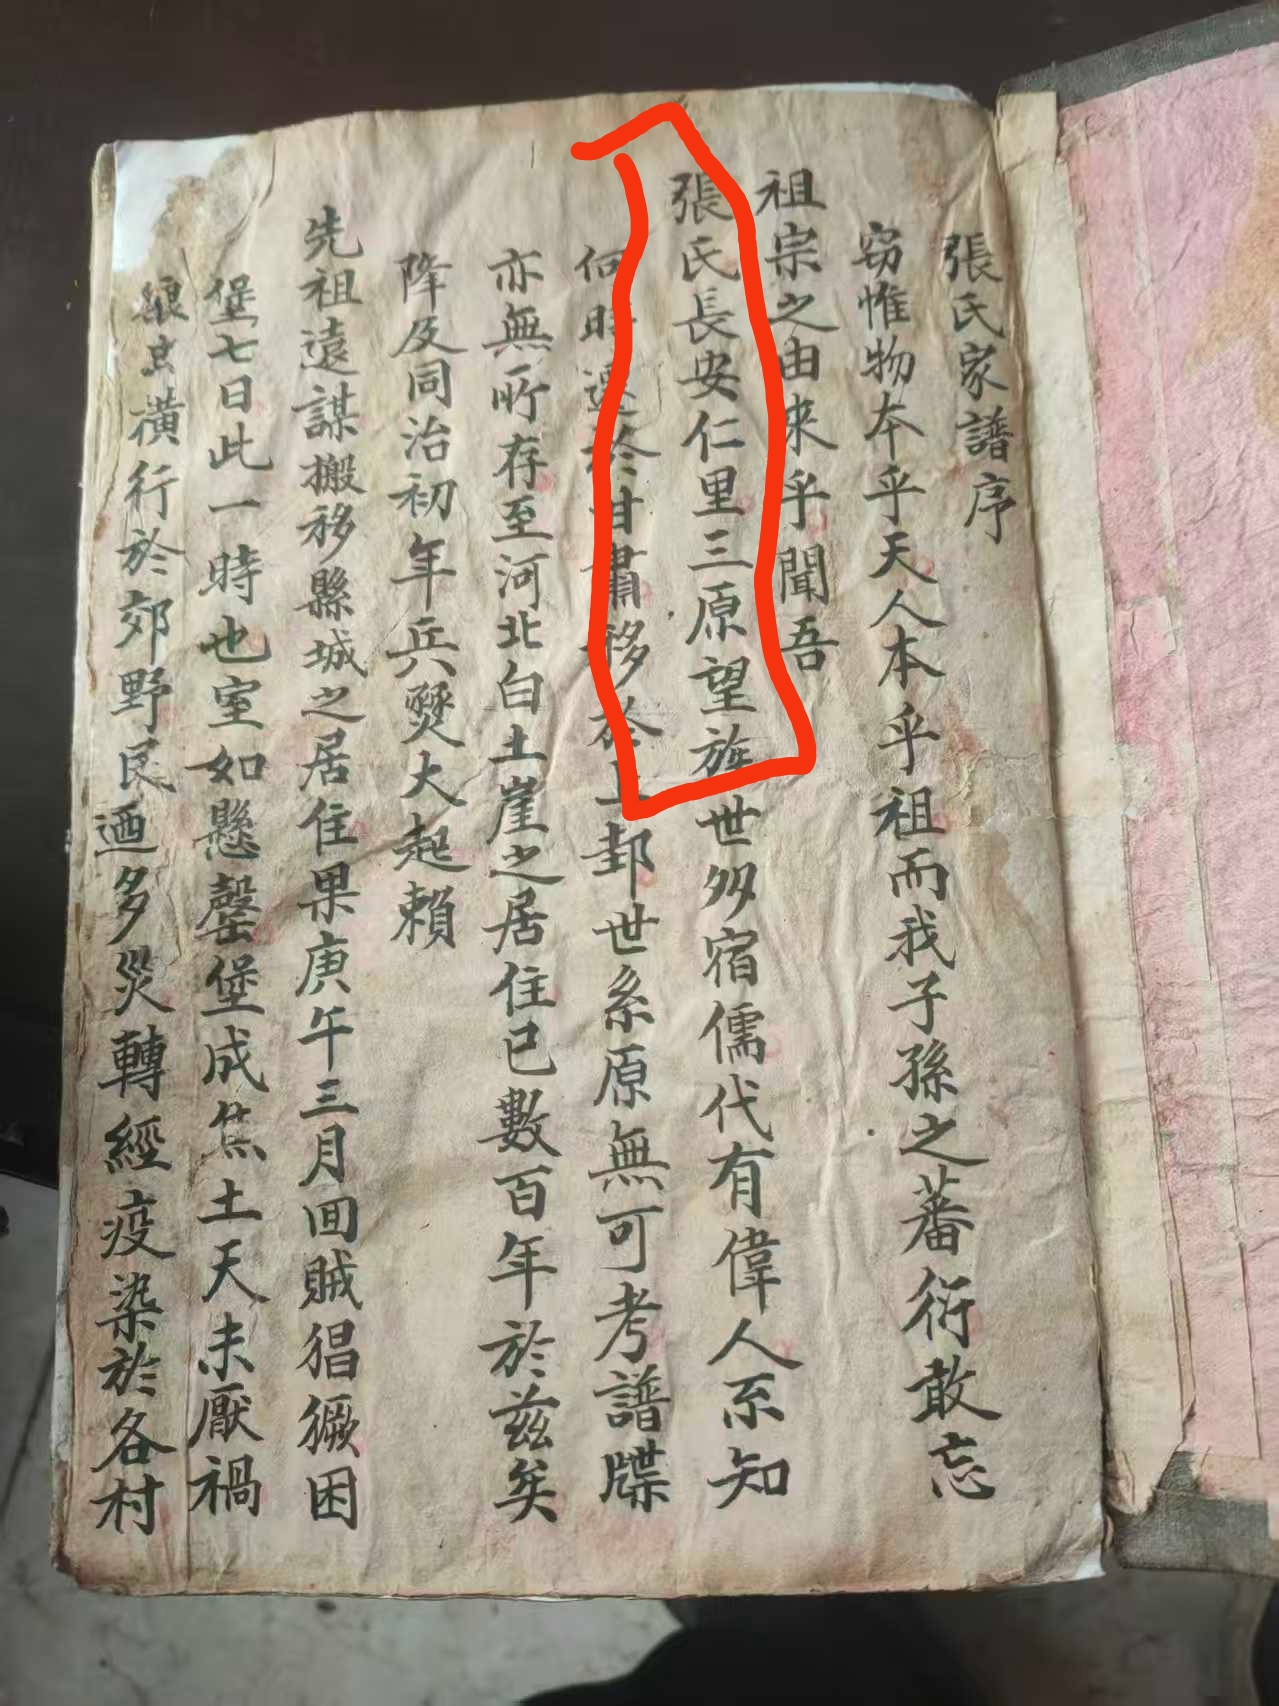 張氏家譜序
窃惟物本乎天人本乎祖而我子孫之蕃衍敢忘
祖宗之由来乎聞吾
張氏長安仁里三原望族世多宿儒代有偉人不知
何時遷於甘肅移於上邽世系原無可考譜牒
亦無所存至河北白土崖之居住已數百年於兹矣
降及同治初年兵燹大起賴
先祖遠謀搬移縣城之居住果庚午三月囬賊猖獗困
堡七日此一時也室如懸罄堡成焦土天未厭禍
狼虫横行於郊野民迺多災轉經疫染於各村